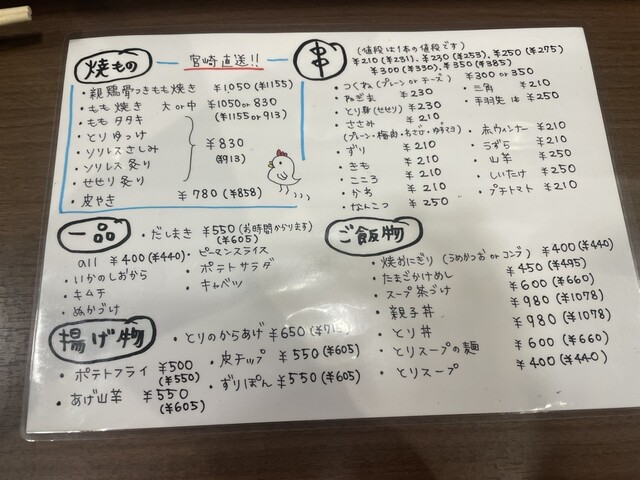 焼もの
宮崎直送!!
・親鶏骨つきもも焼き ¥1,050 (¥1155)
・もも焼き 大or中 ¥1050or 830
(¥1155or 913)
・もも タタキ
・とり ゆっけ
・ソリレス さしみ
・ソリレス 炙り
・せせり 炙り
¥830
(¥913)
・皮やき ¥780 (¥858)
串
(値段は1本の値段です)
¥210 (¥231), ¥230 (¥253), ¥250 (¥275)
¥300 (¥330), ¥350 (¥385)
・つくね (プレーン or チーズ) ¥300 or 350
・ねぎま ¥230
・とり身 (せせり) ¥230
・ささみ ¥210
(プレーン・梅肉・わさび・ゆずマヨ)
・ずり ¥210
・きも ¥210
・こころ ¥210
・かわ ¥210
・なんこつ ¥250
・三角 ¥210
・手羽先 ¥250
・赤ウィンナー ¥210
・うずら ¥210
・山芋 ¥250
・しいたけ ¥250
・プチトマト ¥210
一品
・だしまき ¥550 (お時間かかります)
(¥605)
all ¥400 (¥440)
・いかのしおから
・キムチ
・ぬかづけ
・ピーマンスライス
・ポテトサラダ
・キャベツ
揚げ物
・とりのからあげ ¥650
・ポテトフライ ¥500
(¥550)
・あげ山芋 ¥550
(¥605)
・皮チップ ¥550 (¥605)
・ずりぽん ¥550 (¥605)
ご飯物
・焼おにぎり (うめかつお or コンブ) ¥400 (¥440)
・たまごかけめし ¥450 (¥495)
・スープ茶づけ ¥600 (¥660)
・親子丼 ¥980 (¥1078)
・とり丼 ¥980 (¥1078)
・とりスープの麺 ¥600 (¥660)
・とりスープ ¥400 (¥440)